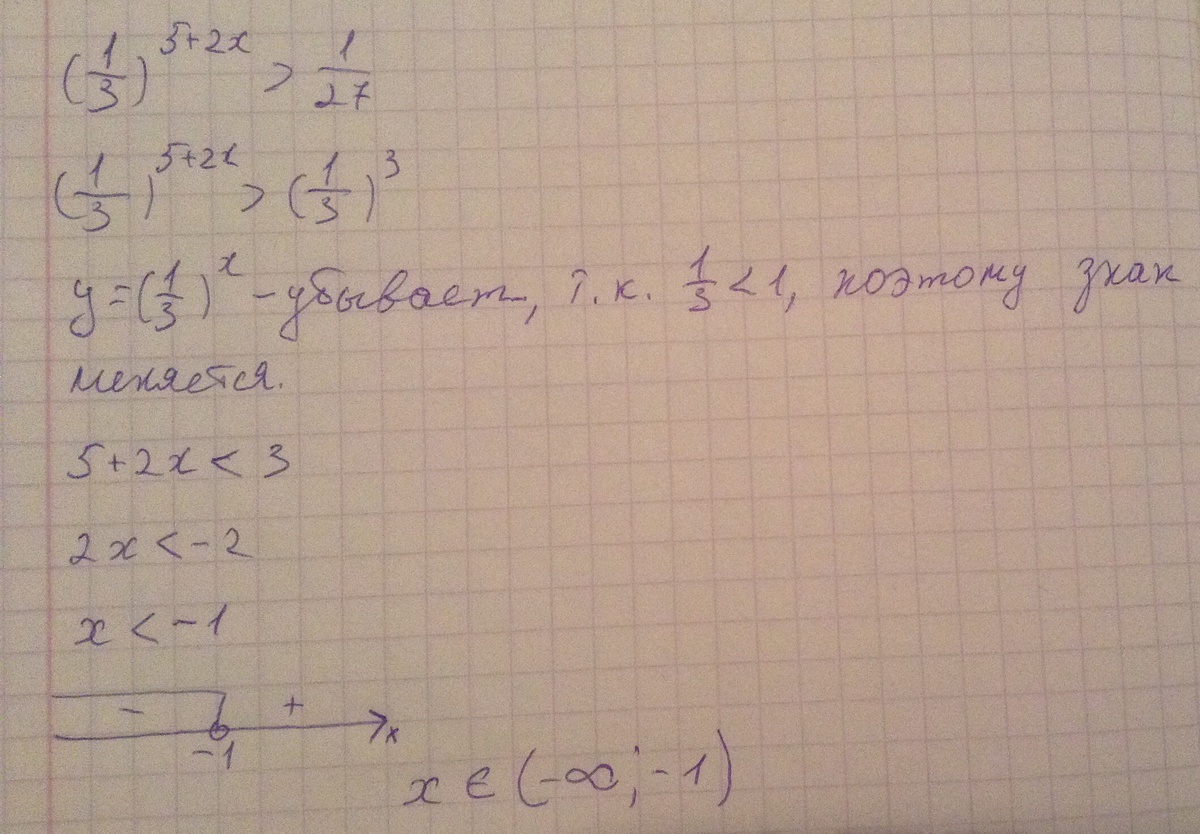 (1/3)^(5+2x) > 1/27
(1/3)^(5+2x) > (1/3)^3
y=(1/3)^x - убывает, т.к. 1/3 < 1, поэтому знак
меняется.
5+2x < 3
2x < -2
x < -1
- +
-1 x
x ∈ (-∞; -1)